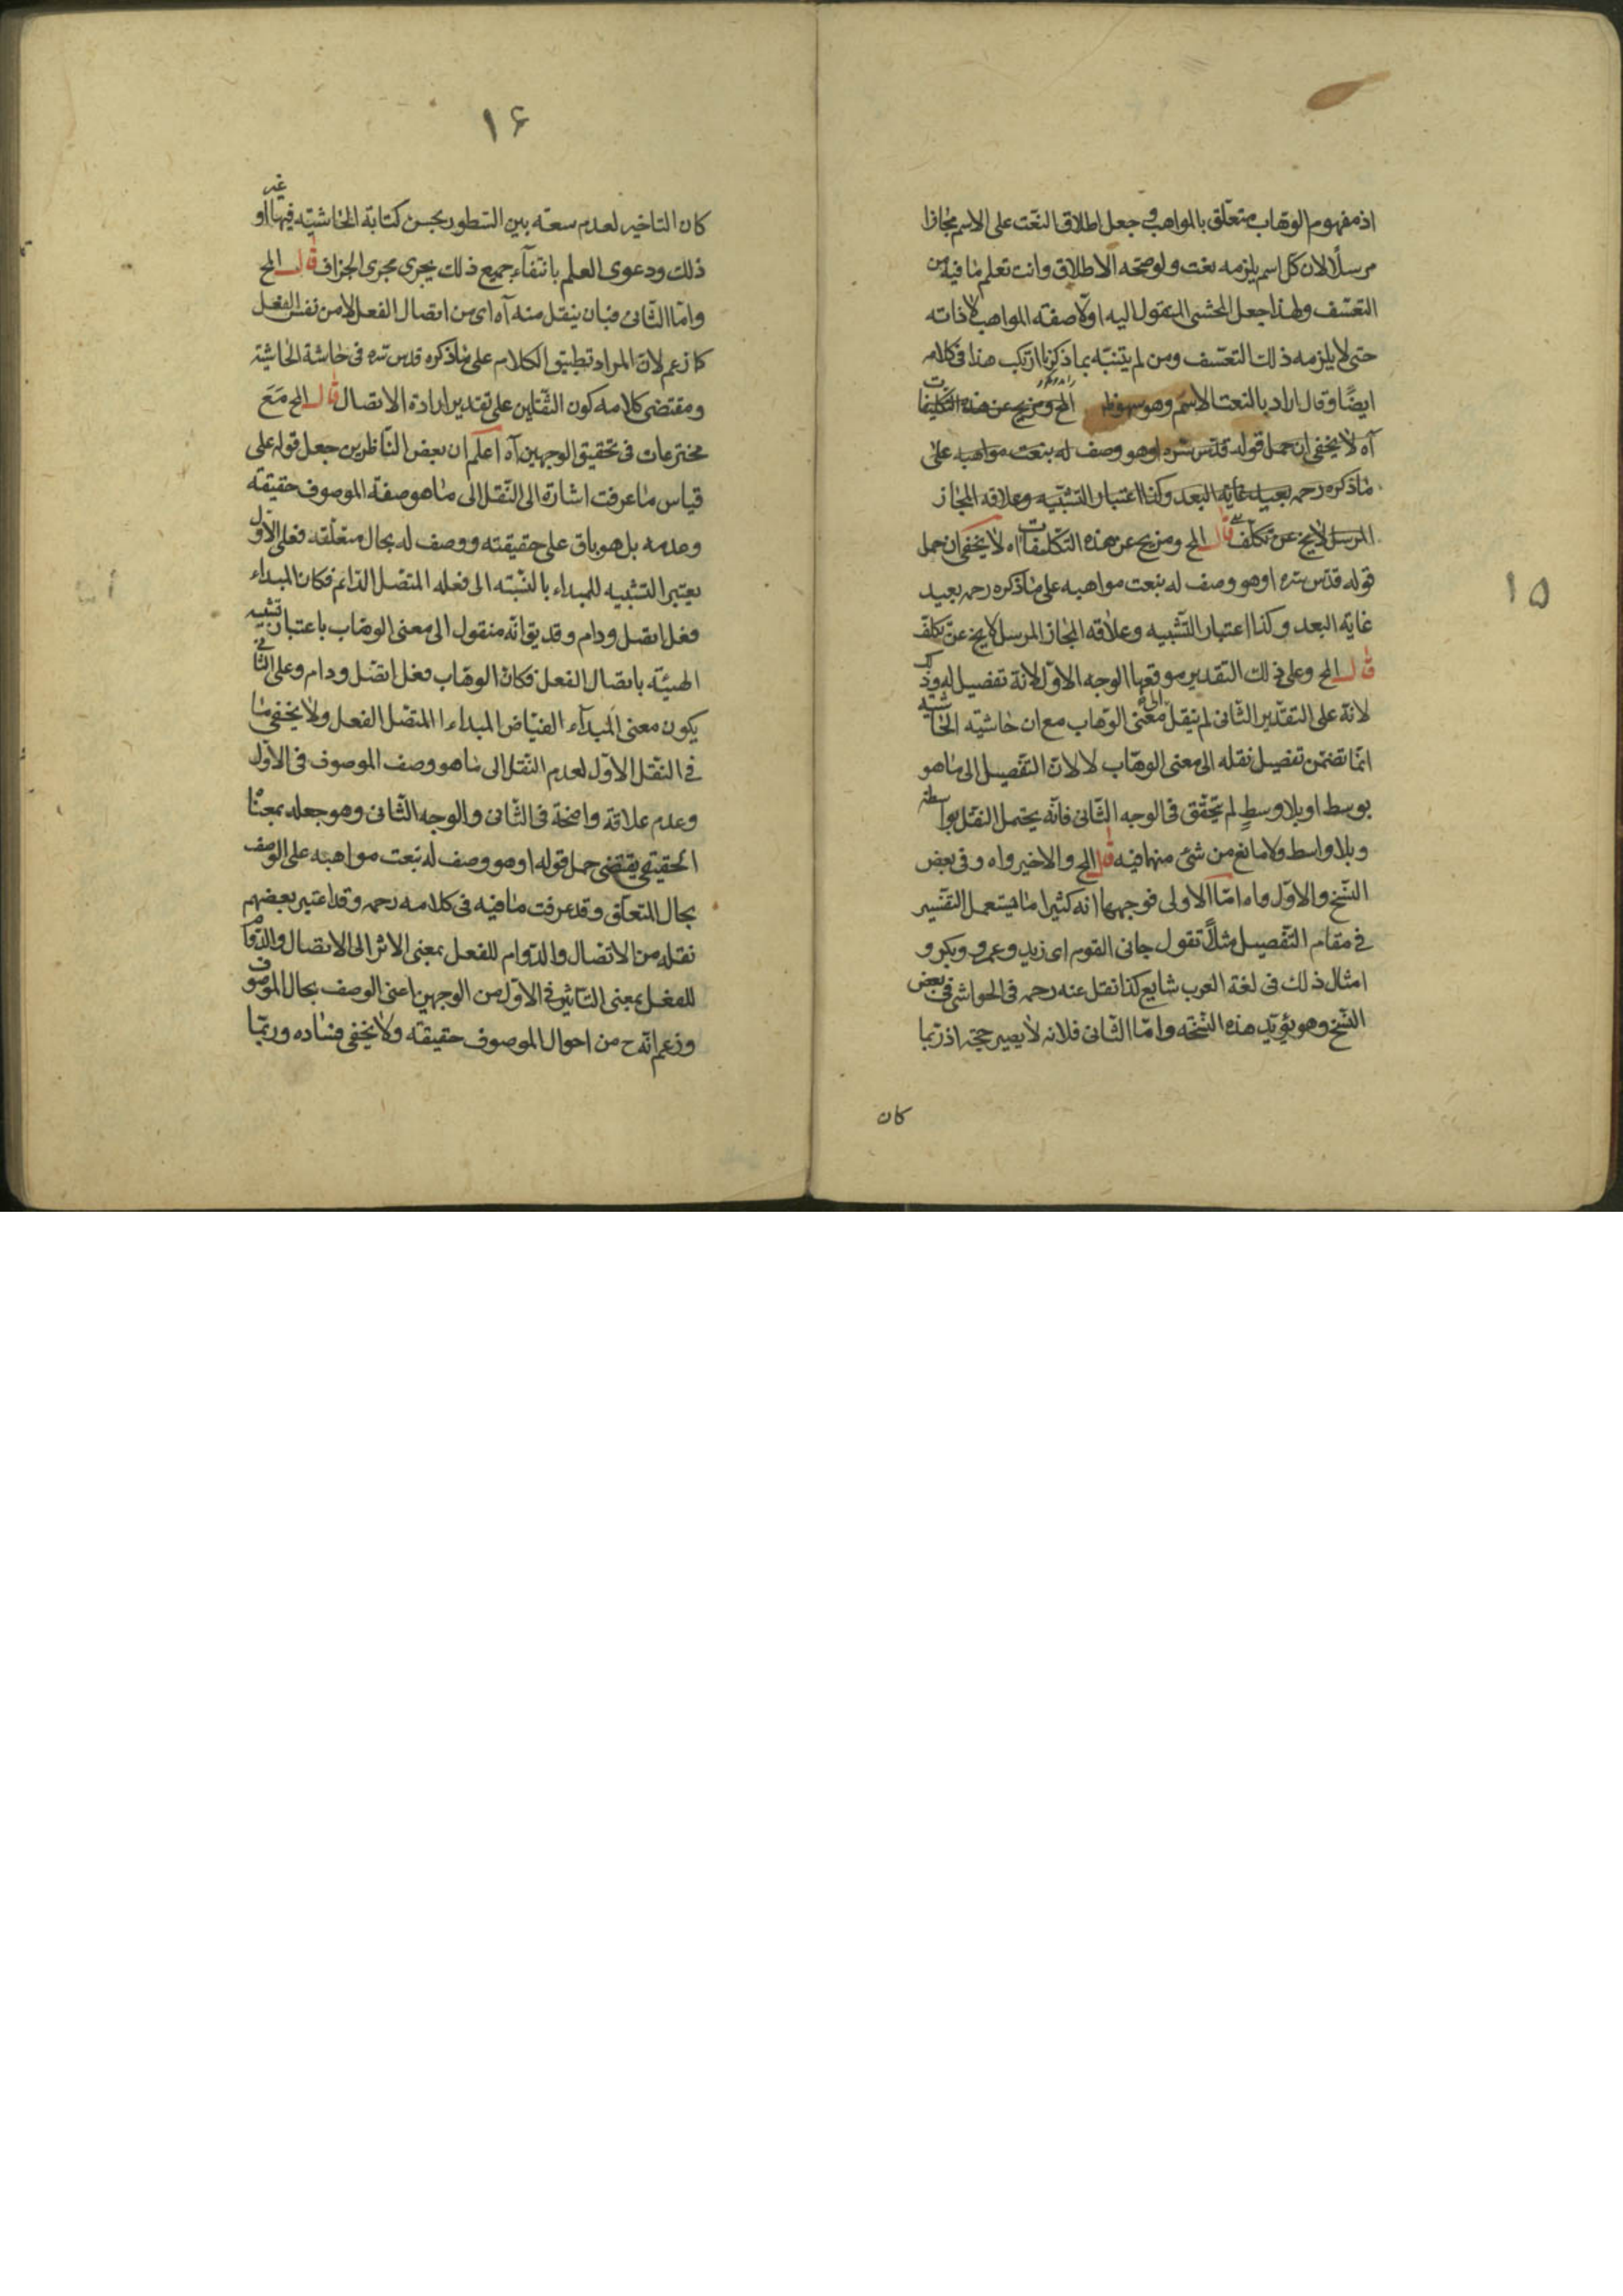 اذ مفهوم الوهاب متعلق بالمواهب و جعل اطلاق النعت على الاسم مجازا
مرسلا لان كل اسم يلزمه نعت ولو صححه الاطلاق وانت تعلم ما فيه من
التعسف ولهذا جعل المحشى المنقول اليه اولا صفة المواهب لا ذاته
حتى لا يلزمه ذلك التعسف ومن لم يتنبه بما ذكرنا ارتكب هذا فى كلامه
ايضا وقال اراد بالنعت الاسم وهو سهو ظ المح ومن يح عن هذه التكليفات
آه لا يخفى ان حمل قوله قدس سره اوهو وصف له بنعت مواهبه على
ما ذكره رحمه بعيد غاية البعد وكذا اعتبار التشبيه وعلاقه المجاز
المرسل لايخ عن تكلف قال المح ومن يح عن هذه التكليفات اه لا يخفى ان حمل
قوله قدس سره اوهو وصف له بنعت مواهبه على ما ذكره رحمه بعيد
غاية البعد وكذا اعتبار التشبيه وعلاقه المجاز المرسل لايخ عن تكلف
قال المح وعلى ذلك التقدير موقعها الوجه الاول لانه تفصيل له وذلك
لانه على التقدير الثانى لم ينقل الى معنى الوهاب مع ان حاشيته الحاشيه
انما تضمن تفصيل نقله الى معنى الوهاب لا لان التفصيل الى ما هو
بوسط او بلا وسط لم يتحقق فى الوجه الثانى فانه يحتمل النقل بواسطه
وبلا واسط ولا مانع من شئ منهما فيه قال المح والاخير واه وفى بعض
النسخ والاول واه اما الاولى فوجهها انه كثيرا ما يستعمل التفسير
فى مقام التفصيل مثلا تقول جانى القوم اى زيد وعمرو وبكر و
امثال ذلك فى لغة العرب شايع كذا نقل عنه رحمه فى الحواشى فى بعض
النسخ وهو يؤيد هذه النسخه واما الثانى فلانه لا يصير حجة اذ ربما
كان
١٥
١۶
كان التاخير لعدم سعته بين السطور بحسن كتابة الحاشيته فيها او غير
ذلك ودعوى العلم بانتفاء جميع ذلك يجرى مجرى الجزاف قال المح
واما الثانى فبان ينقل منه آه اى من اتصال الفعل لا من نفس الفعل
كما زعم لان المراد تطبيق الكلام على ما ذكره قدس سره فى حاشية الحاشية
ومقتضى كلامه كون النقلين على تقدير ارادة الاتصال قال المح مع
مخترعات فى تحقيق الوجهين آه اعلم ان بعض الناظرين جعل قوله على
قياس ما عرفت اشارة الى النقل الى ما هو صفة الموصوف حقيقة
وعدمه بل هو باق على حقيقته ووصف له بحال متعلقه فعلى الاول
يعتبر التشبيه للمبداء بالنسبته الى فعله المتصل الدائم فكان المبداء
فعل اتصل ودام وقد يق انه منقول الى معنى الوهاب باعتبار تشبيه
الهيئة باتصال الفعل فكان الوهاب فعل اتصل ودام وعلى الثانى
يكون معنى المبداء الفياض المبداء المتصل الفعل ولا يخفى ما
فى النقل الاول لعدم النقل الى ما هو وصف الموصوف فى الاول
وعدم علاقة واضحة فى الثانى والوجه الثانى وهو جعله بمعناه
الحقيقى يقتضى حمل قوله اوهو وصف له بنعت مواهبه على الوصف
بحال المتعلق وقد عرفت ما فيه فى كلامه رحمه وقد اعتبر بعضهم
نقله من الاتصال والدوام للفعل بمعنى الاثر الى الاتصال والدوام
للفعل بمعنى التاثير فى الاول من الوجهين اعنى الوصف بحال الموصوف
وزعم انه ح من احوال الموصوف حقيقة ولا يخفى فساده وربما